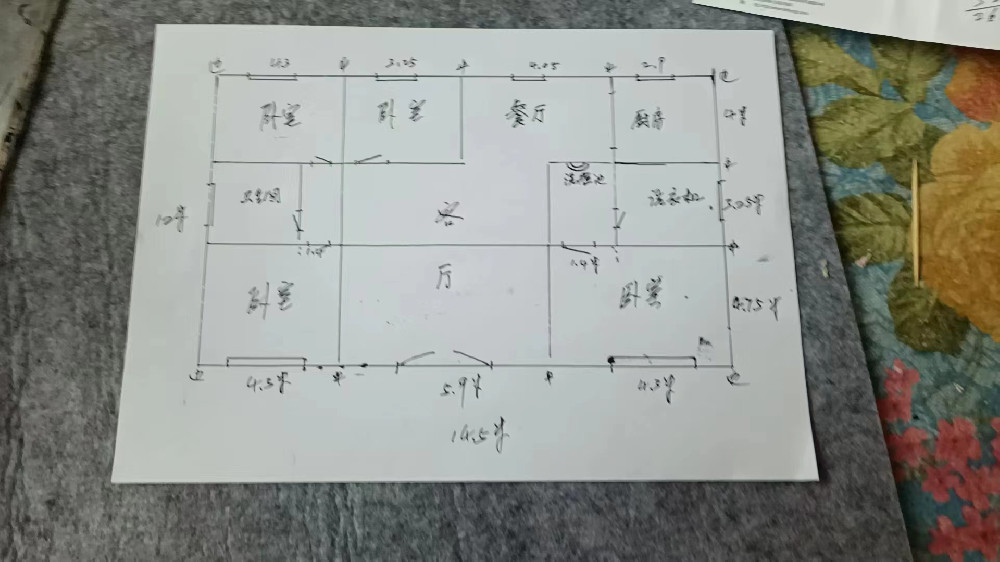 4.3 3.25 4.05 2.9
卧室 卧室 餐厅 厨房
卫生间 洗手池 洗衣机 3.25米
10米
客
1.4米 1.4米
厅
卧室 卧室 4.75米
4.3米 5.9米 4.3米
14.5米